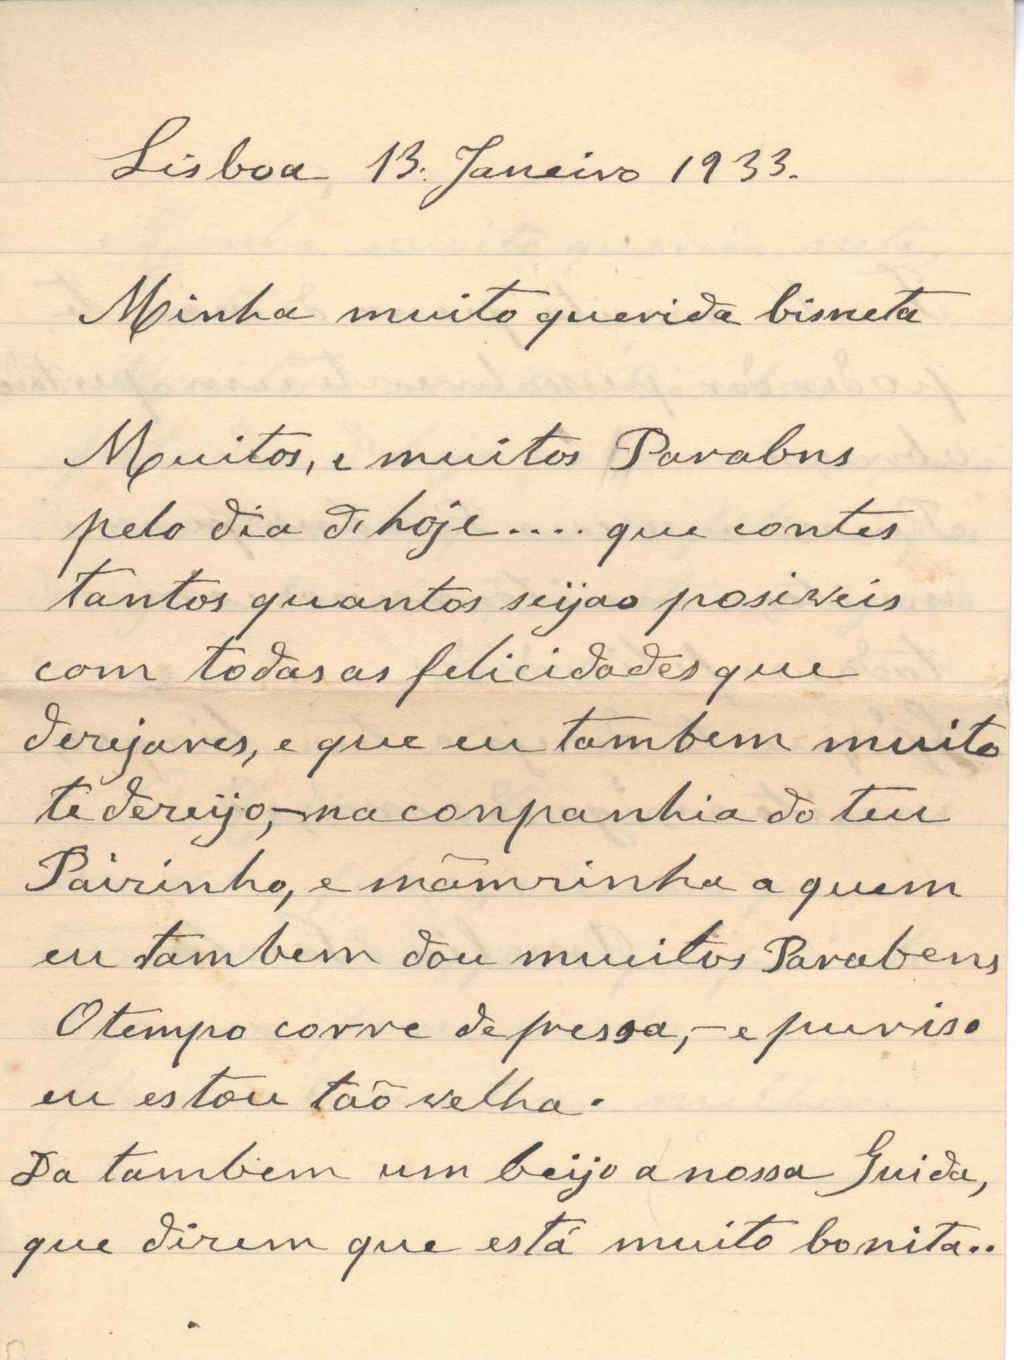 Lisboa 13. Janeiro 1933.
Minha muito querida bisneta
Muitos, e muitos Parabns
pelo dia de hoje.... que contes
tantos quantos seijao posiveis
com todas as felicidades que
dezejares, e que eu tambem muito
te dezeijo,- na conpanhia do teu
Paizinho, e mãmzinha a quem
eu tambem dou muitos Parabens
O tempo corre depressa,- e puriso
eu estou taõ velha.
Da tambem um beijo a nossa Guida,
que dizem que está muito bonita..